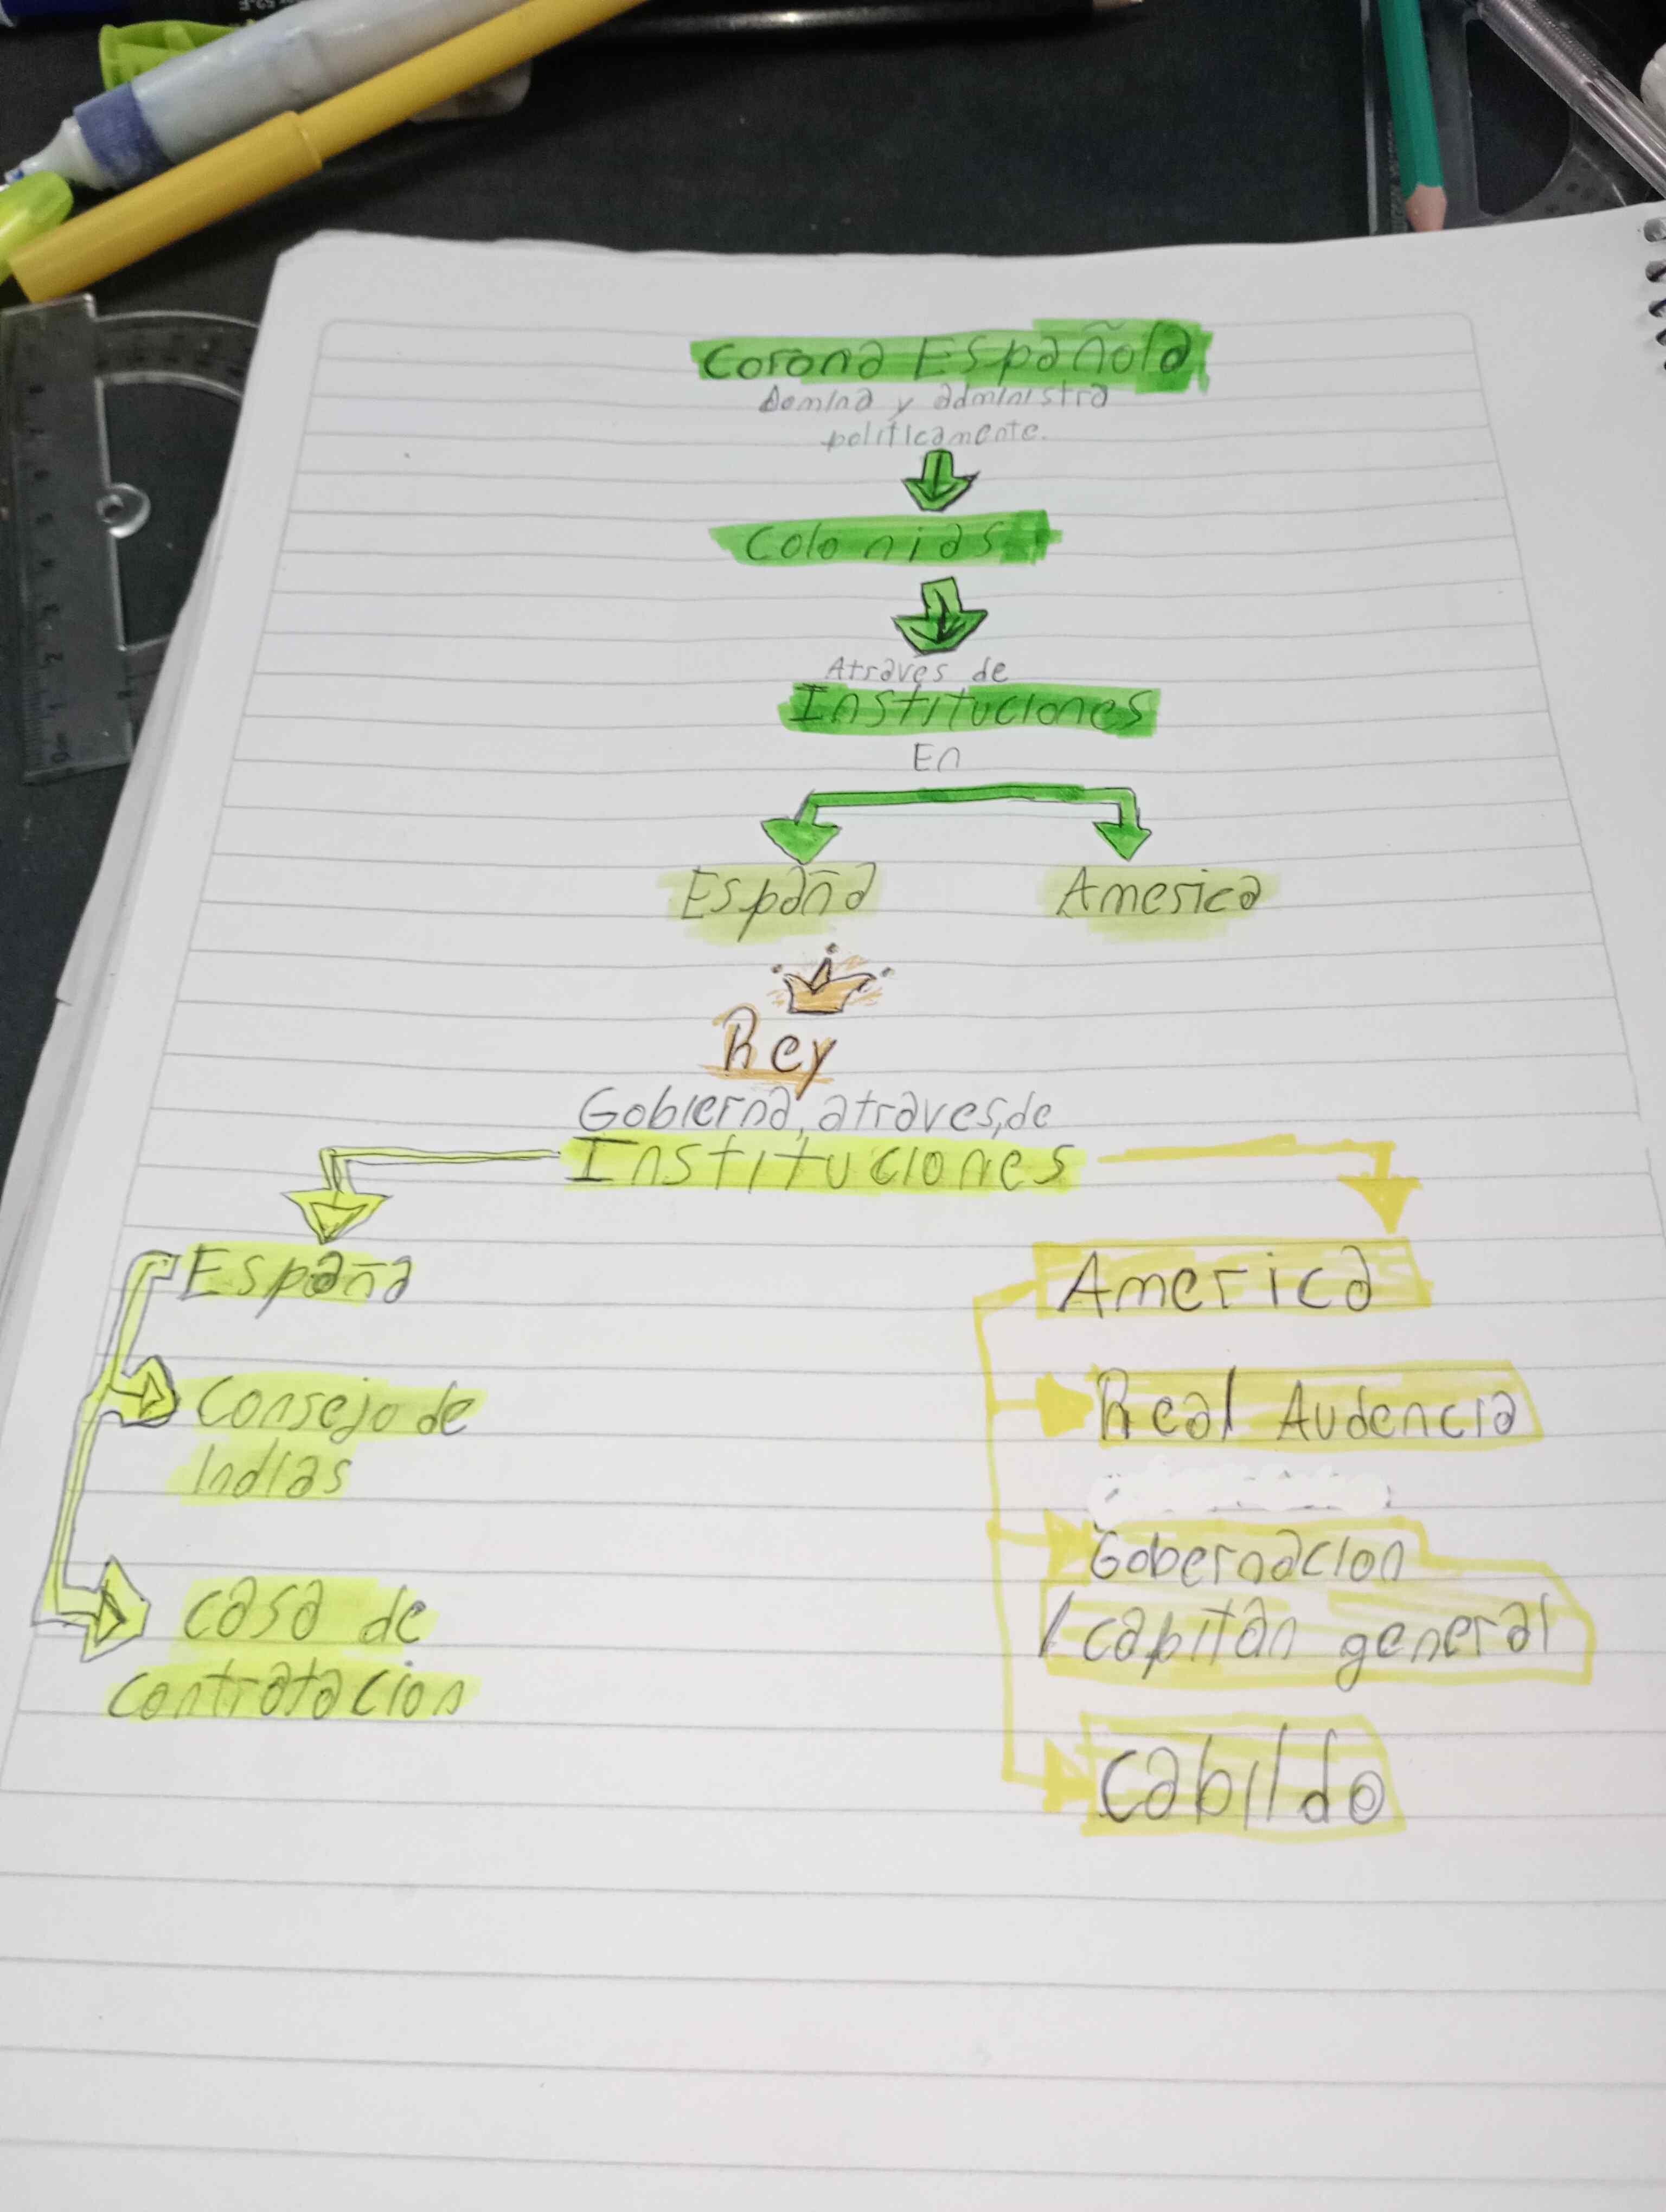 Corona Española
Domina y administra
políticamente.
Colonias
Através de
Instituciones
En
España America
Rey
Gobierna, atraves, de
Instituciones
España America
Consejo de Real Audencia
Indias
Gobernacion
casa de / capitán general
contratacion
cabildo